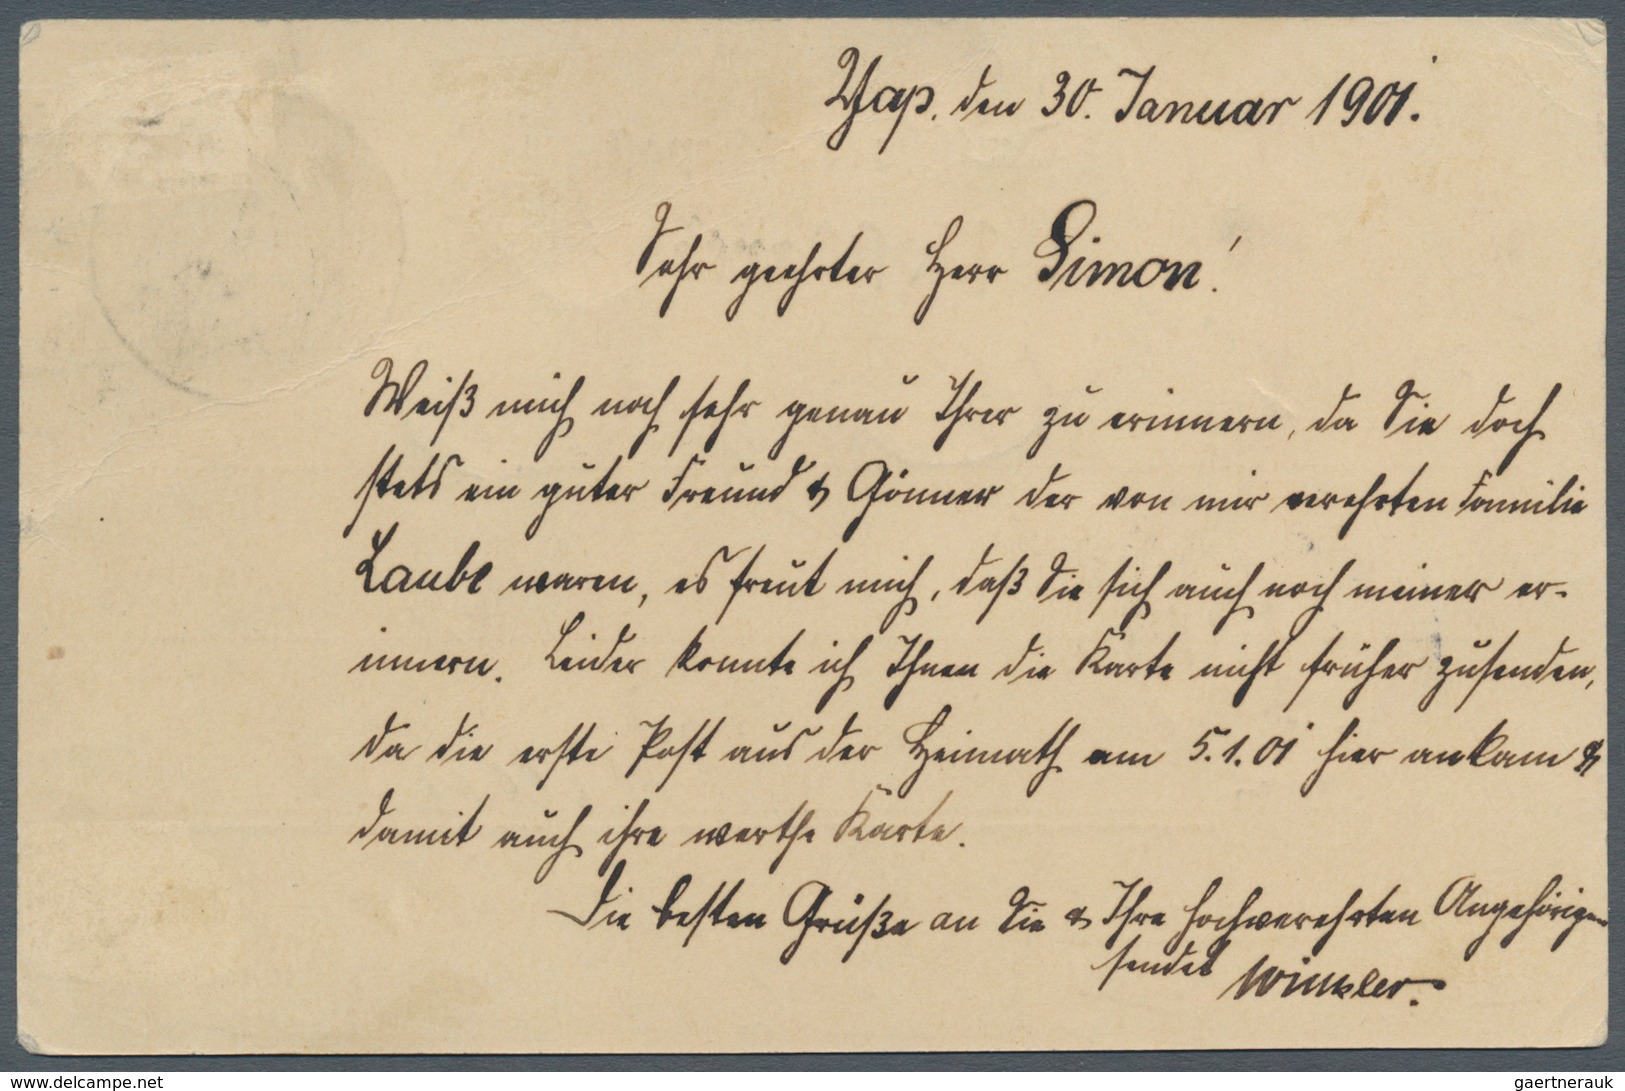 Yap, den 30. Januar 1901.
Sehr geehrter Herr Simon!
Weiß mich noch sehr genau Ihrer zu erinnern, da Sie doch
stets ein guter Freund & Gönner der von mir verehrten Familie
Laube waren, es freut mich, daß Sie sich auch noch meiner er-
innern. Leider konnte ich Ihnen die Karte nicht früher zusenden,
da die erste Post aus der Heimath am 5.1.01 hier ankam &
damit auch ihre werthe Karte.
Die besten Grüße an Sie & Ihre hochverehrten Angehörigen
sendet Winkler.
www.delcampe.net
gaertnerauk